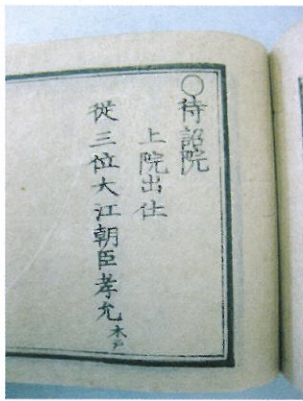 ○待詔院
上院出仕
從三位大江朝臣孝允木戸